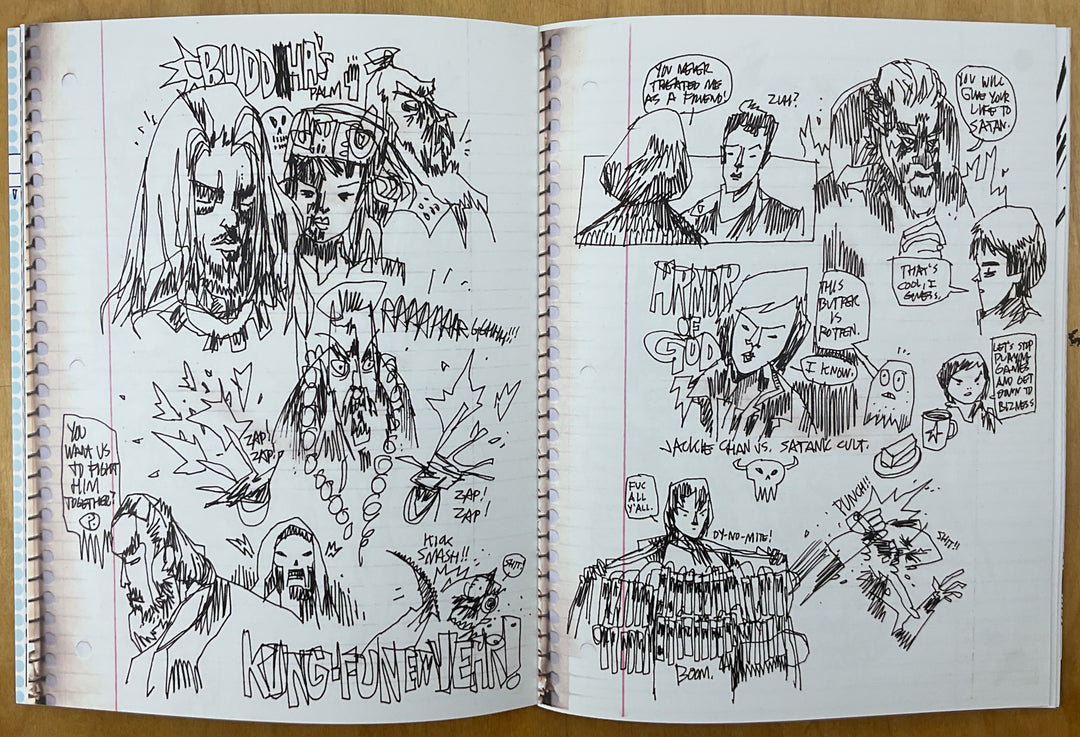 BUDDHA'S
PALM
RRRRRRRR GGHHH!!!
ZAP!
ZAP!
ZAP!
ZAP!
YOU
WANT US
TO FIGHT
HIM
TOGETHER?
KICK
SMASH!!
SHIT!
KUNG-FU NEW YEAR!
YOU NEVER
TREATED ME
AS A FRIEND!
YOU WILL
GIVE YOUR
LIFE TO
SATAN.
THAT'S
COOL, I
GUESS.
ARMOR
OF
GOD
THIS
BUTTER
IS
ROTTEN.
I KNOW.
LET'S STOP
PLAYING
GAMES
AND GET
DOWN TO
BIZNESS
JACKIE CHAN VS. SATANIC CULT.
FUC
ALL
Y'ALL.
DY-NO-MITE!
PUNCH!!
SHIT!!
BOOM.